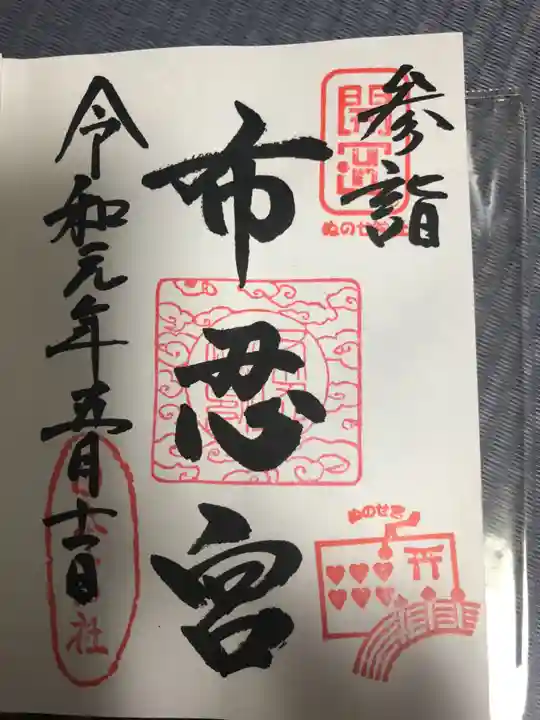 参詣
開運
ぬのせ
布忍宮
ぬのせ
令和元年五月十二日
社